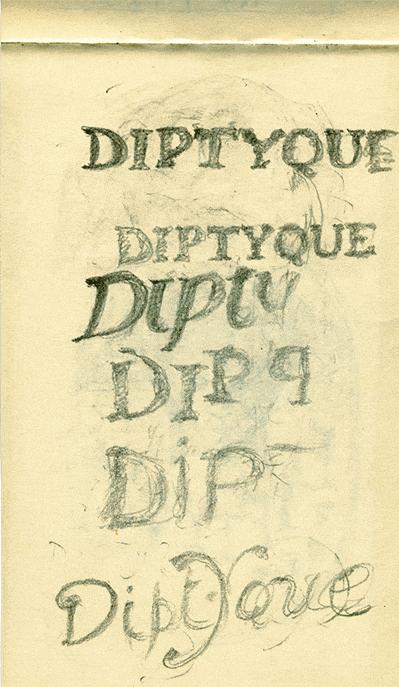 DIPTYQUE
DIPTYQUE
Dipty
DIP q
DiP
DiptYque